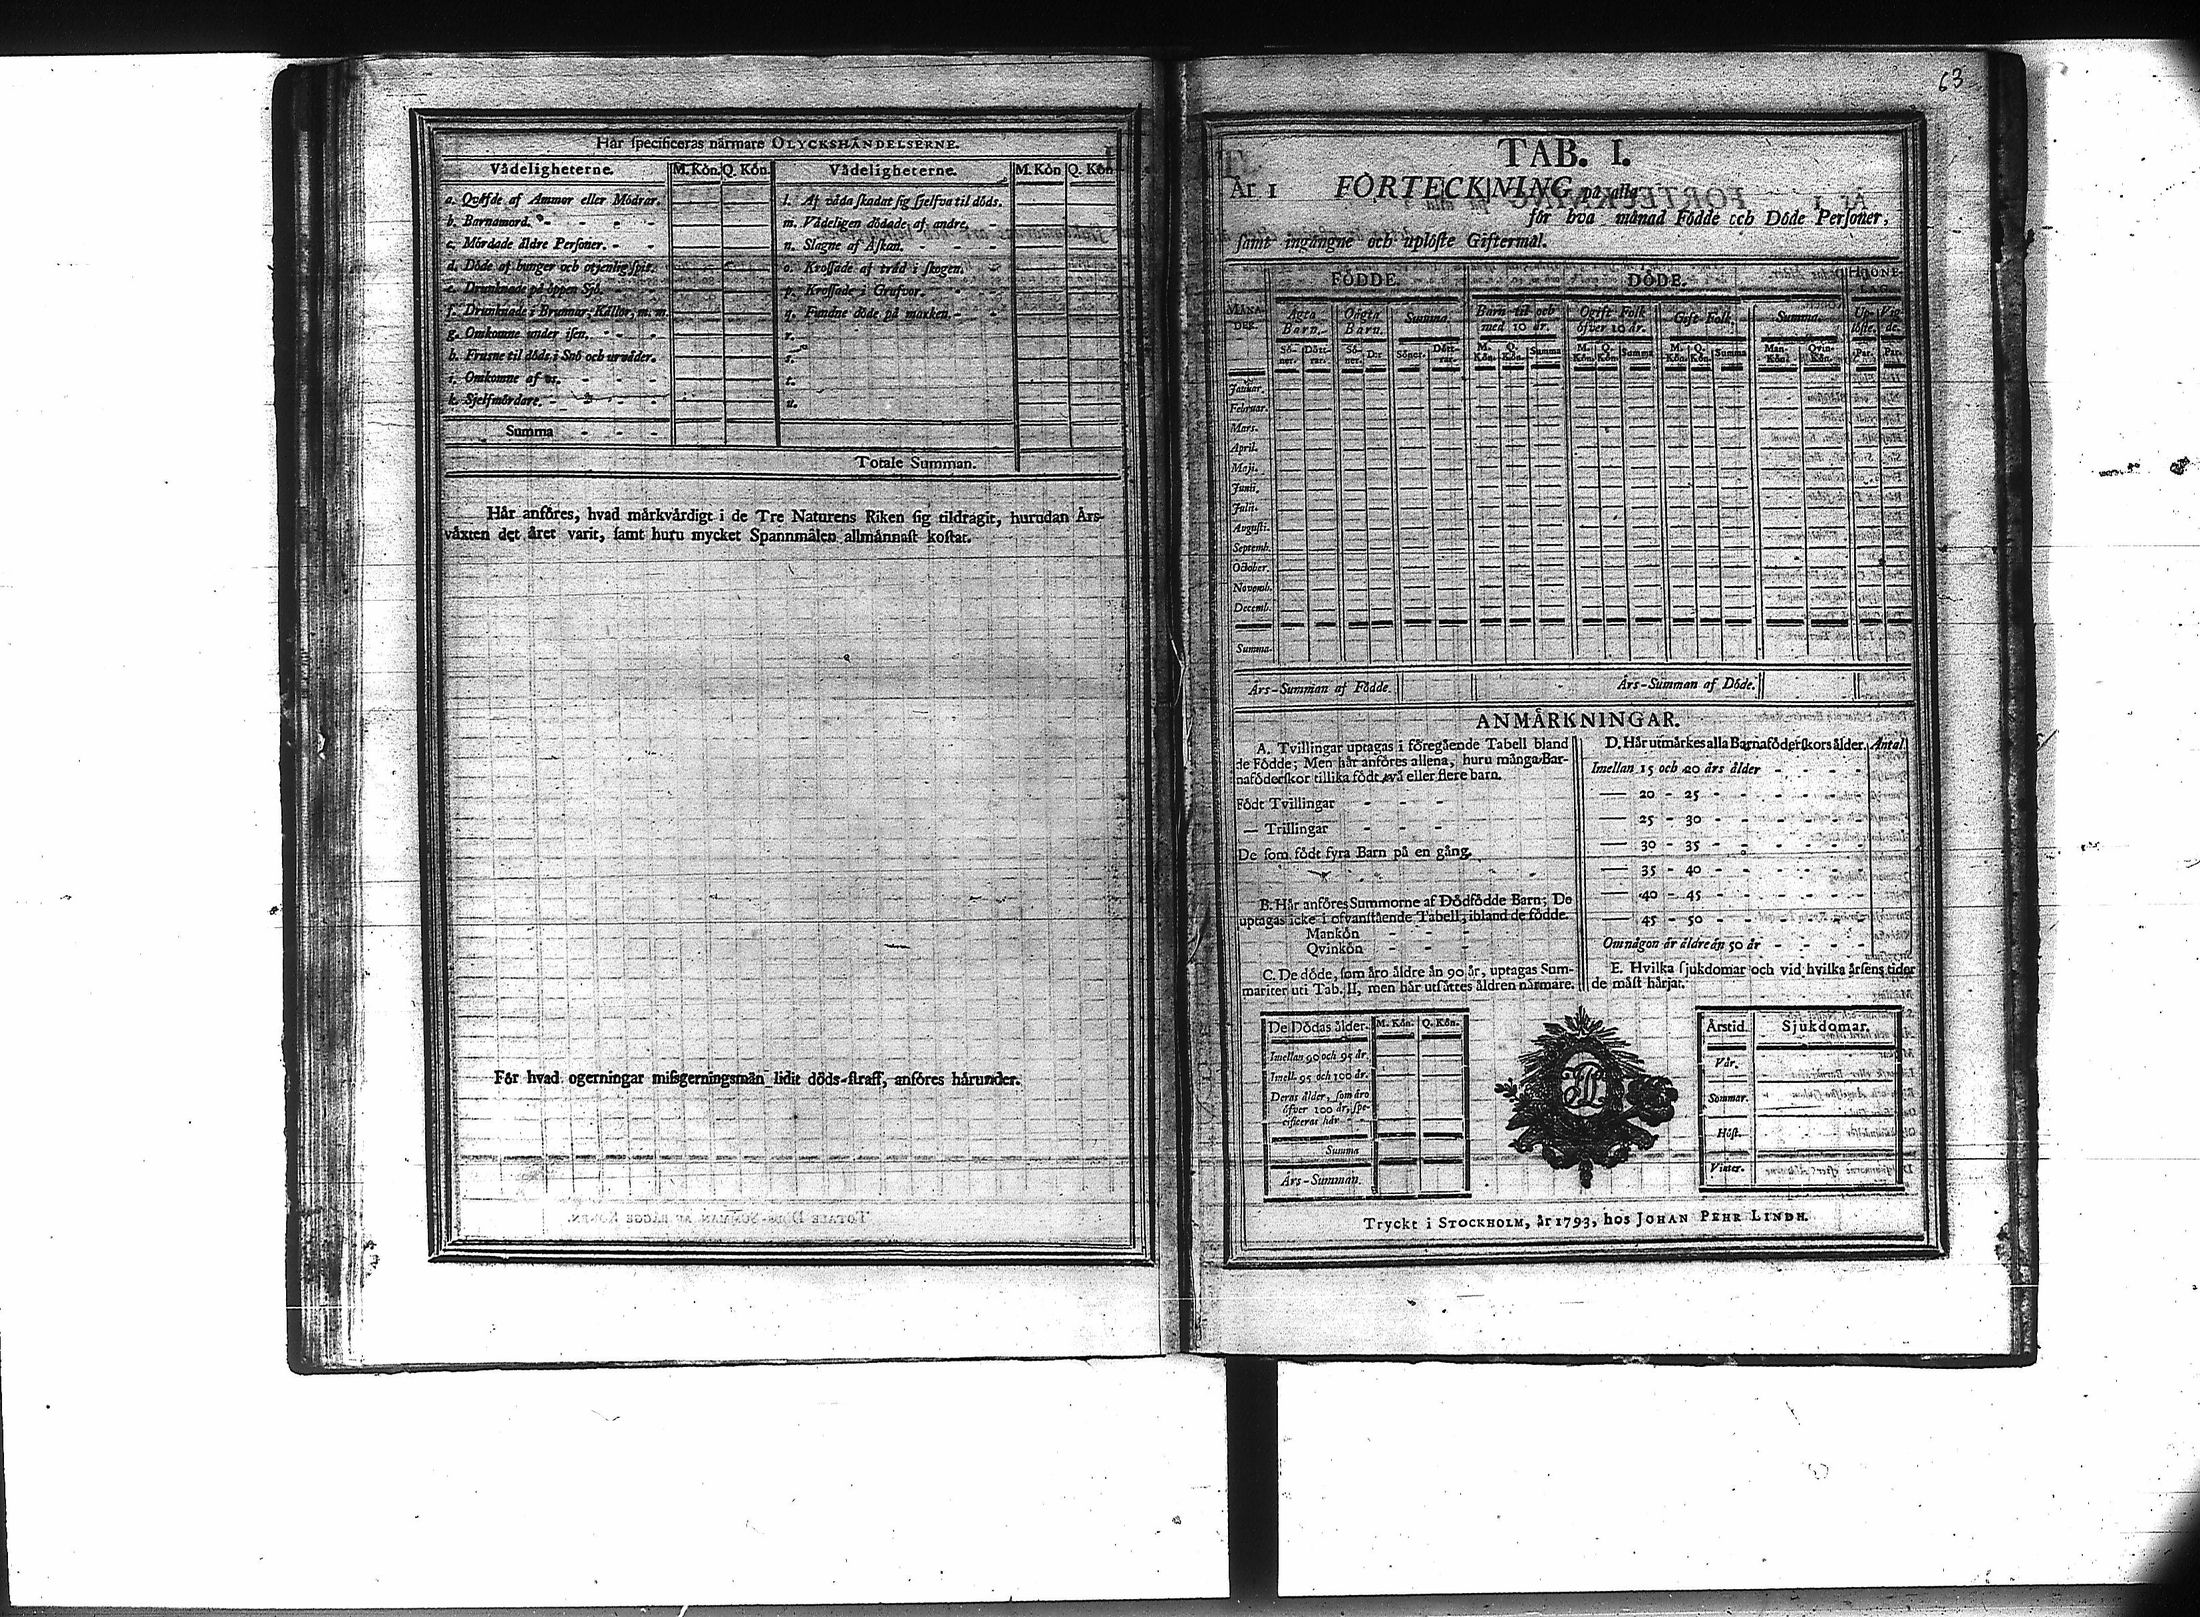 Hår ſpecificeras nårmare OLYCKSHÄNDELSERNE.
Vådeligheterne. M. Kön. Q. Kön. Vådeligheterne. M. Kön Q. Kön
a. Qväfde af Ammor eller Mödrar. l. Af våda ſkadat ſig ſjelfva til döds.
b. Barnamord. m. Vådeligen dödade af andre.
c. Mördade äldre Perſoner. n. Slagne af Åſkan.
d. Döde af hunger och otjenlig ſpis. o. Kroſſade af träd i ſkogen.
e. Drunknade på öppen Sjö. p. Kroſſade i Grufvor.
f. Drunknade i Brunnar, Källor, m. m. q. Fundne döde på marken.
g. Omkomne under iſen. r.
h. Fruſne til döds i Snö och urväder. s.
i. Omkomne af os. t.
k. Sjelfmördare. u.
Summa
Totale Summan.
Hår anföres, hvad mårkvårdigt i de Tre Naturens Riken ſig tildragit, hurudan Års-
våxten det året varit, ſamt huru mycket Spannmålen allmånnaſt koſtat.
För hvad ogerningar miſsgerningsmån lidit döds-ſtraff, anföres hårunder.
63
TAB. I.
År 1 FÖRTECKNING på alla
för hva månad Födde och Döde Perſoner,
ſamt ingångne och uplöſte Giftermål.
FÖDDE. DÖDE. HJONE-
LAG.
MÅNA-
DER. Ägta
Barn. Oägta
Barn. Summa. Barn til och
med 10 år. Ogift Folk
öfver 10 år. Gift Folk. Summa. Up-
löſte. Vig-
de.
Sö-
ner. Dött-
rar. Sö-
ner. D:r Söner. Dött-
rar. M.
Kön. Q.
Kön. Summa M.
Kön. Q.
Kön. Summa M.
Kön. Q.
Kön. Summa Man-
Kön. Qvin-
Kön. Par. Par.
Januar.
Februar.
Mars.
April.
Maji.
Junii.
Julii.
Auguſti.
Septemb.
October.
Novemb.
Decemb.
Summa.
Års-Summan af Födde. Års-Summan af Döde.
ANMÅRKNINGAR.
A. Tvillingar uptagas i föregående Tabell bland
de Födde; Men hår anföres allena, huru många Bar-
naföderſkor tillika födt två eller flere barn.
Födt Tvillingar - - -
— Trillingar - - -
De ſom födt fyra Barn på en gång.
B. Hår anföres Summorne af Dödfödde Barn; De
uptagas icke i ofvanſtående Tabell, ibland de födde.
Mankön - - -
Qvinkön - - -
C. De döde, ſom åro åldre ån 90 år, uptagas Sum-
mariter uti Tab. II, men hår utſåttes åldren nårmare.
D. Hår utmårkes alla Barnaföderſkors ålder. Antal.
Imellan 15 och 20 års ålder
— 20 - 25
— 25 - 30
— 30 - 35
— 35 - 40
— 40 - 45
— 45 - 50
Om någon är äldre än 50 år
E. Hvilka ſjukdomar och vid hvilka årſens tider
de måſt hårjat.
De Dödas ålder. M. Kön. Q. Kön.
Imellan 90 och 95 år.
Imell. 95 och 100 år.
Deras ålder, ſom äro
öfver 100 år, ſpe-
cificeras här
Summa
Års-Summan.
Årstid. Sjukdomar.
Vår.
Sommar.
Höſt.
Vinter.
Tryckt i STOCKHOLM, år 1793, hos JOHAN PEHR LINDH.
TOTALE DÖDS-SUMMAN AF BÄGGE KÖNEN.